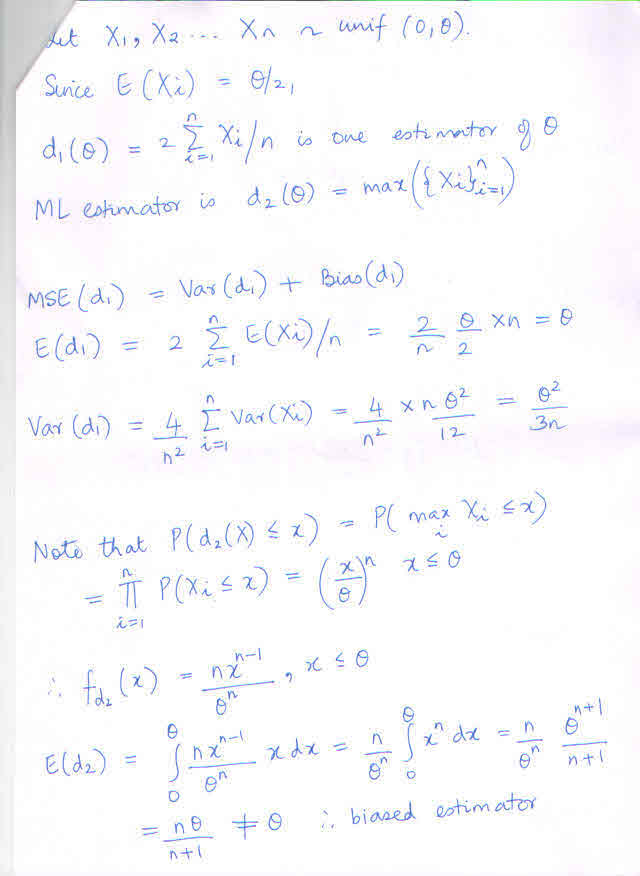 Let X₁, X₂ ... Xn ~ unif (0,θ).
Since E(Xi) = θ/2,
d₁(θ) = 2 ∑_{i=1}^{n} Xi/n is one estimator of θ
ML estimator is d₂(θ) = max({Xi}_{i=1}^{n})
MSE(d₁) = Var(d₁) + Bias(d₁)
E(d₁) = 2 ∑_{i=1}^{n} E(Xi)/n = 2/n θ/2 × n = θ
Var(d₁) = 4/n² ∑_{i=1}^{n} Var(Xi) = 4/n² × n θ²/12 = θ²/3n
Note that P(d₂(X) ≤ x) = P( max_i Xi ≤ x)
= ∏_{i=1}^{n} P(Xi ≤ x) = (x/θ)^n x ≤ θ
∴ f_{d₂}(x) = nx^{n-1}/θ^n, x ≤ θ
E(d₂) = ∫_0^θ nx^{n-1}/θ^n x dx = n/θ^n ∫_0^θ x^n dx = n/θ^n θ^{n+1}/n+1
= nθ/n+1 ≠ θ ∴ biased estimator